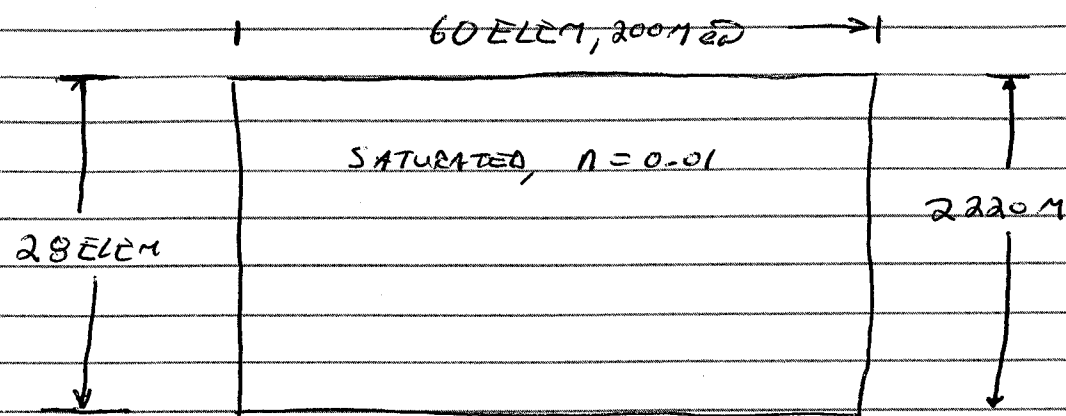 60 ELEM, 200M ea
SATURATED, n = 0.01
28 ELEM
2220 M